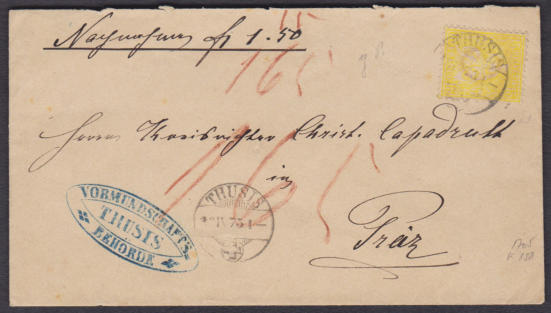 Nachnahme fr 1.50
15
165
THUSIS
Herrn Kreisrichter Christ. Capadrutt
165
in
THUSIS
VORMUNDSCHAFTS-
THUSIS
BEHÖRDE
Präz